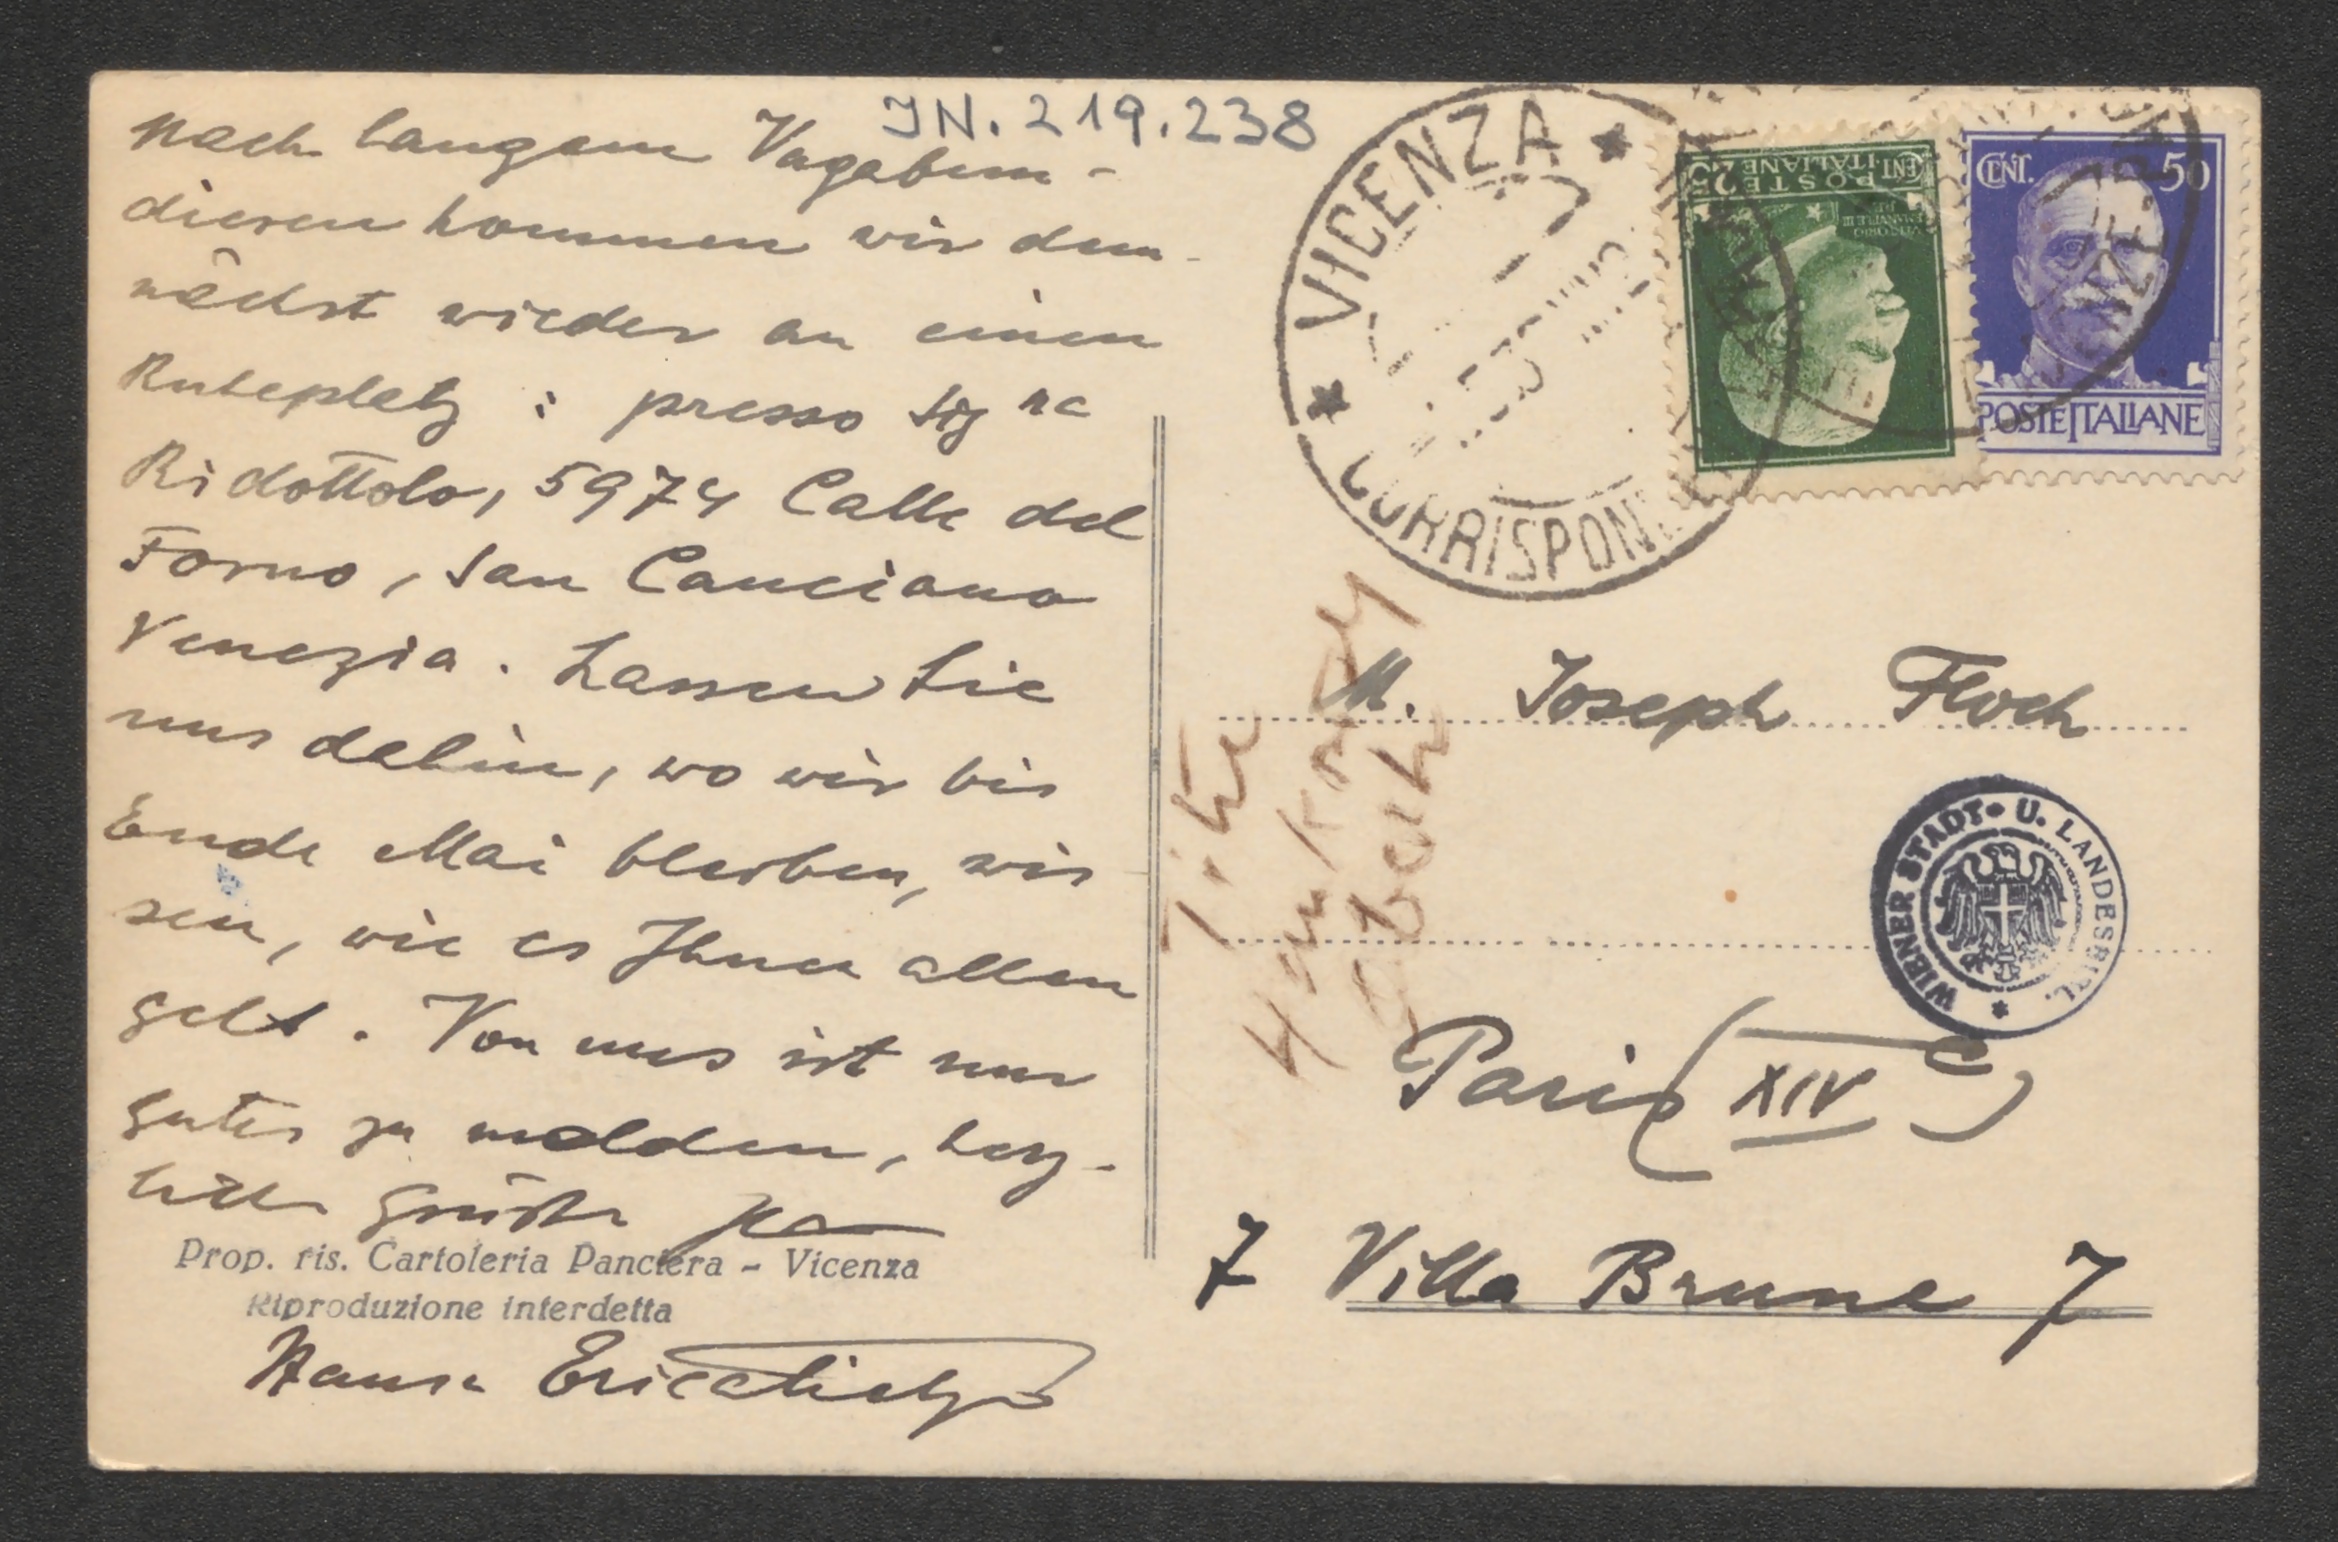 JN. 219.238
Nach langem Vagabun-
dieren kommen wir dem-
nächst wieder an einen
Ruheplatz : presso Sig ra
Ridottolo, 5974 Calle del
Forno, San Canciano
Venezia. Lassen Sie
uns dahin, wo wir bis
Ende Mai bleiben, wis
sen, wie es Ihnen allen
geht. Von uns ist nur
gutes zu melden, herz-
liche Grüße
Prop. ris. Cartoleria Panciera - Vicenza
Riproduzione interdetta
VICENZA
CORRISPON
CENT. 25
POSTE ITALIANE
VITTORIO
EMANUELE III
CENT. 50
POSTE ITALIANE
M. Joseph Floch
WIENER STADT- U. LANDESBIBL.
Paris (XIV e)
7 Villa Brune 7